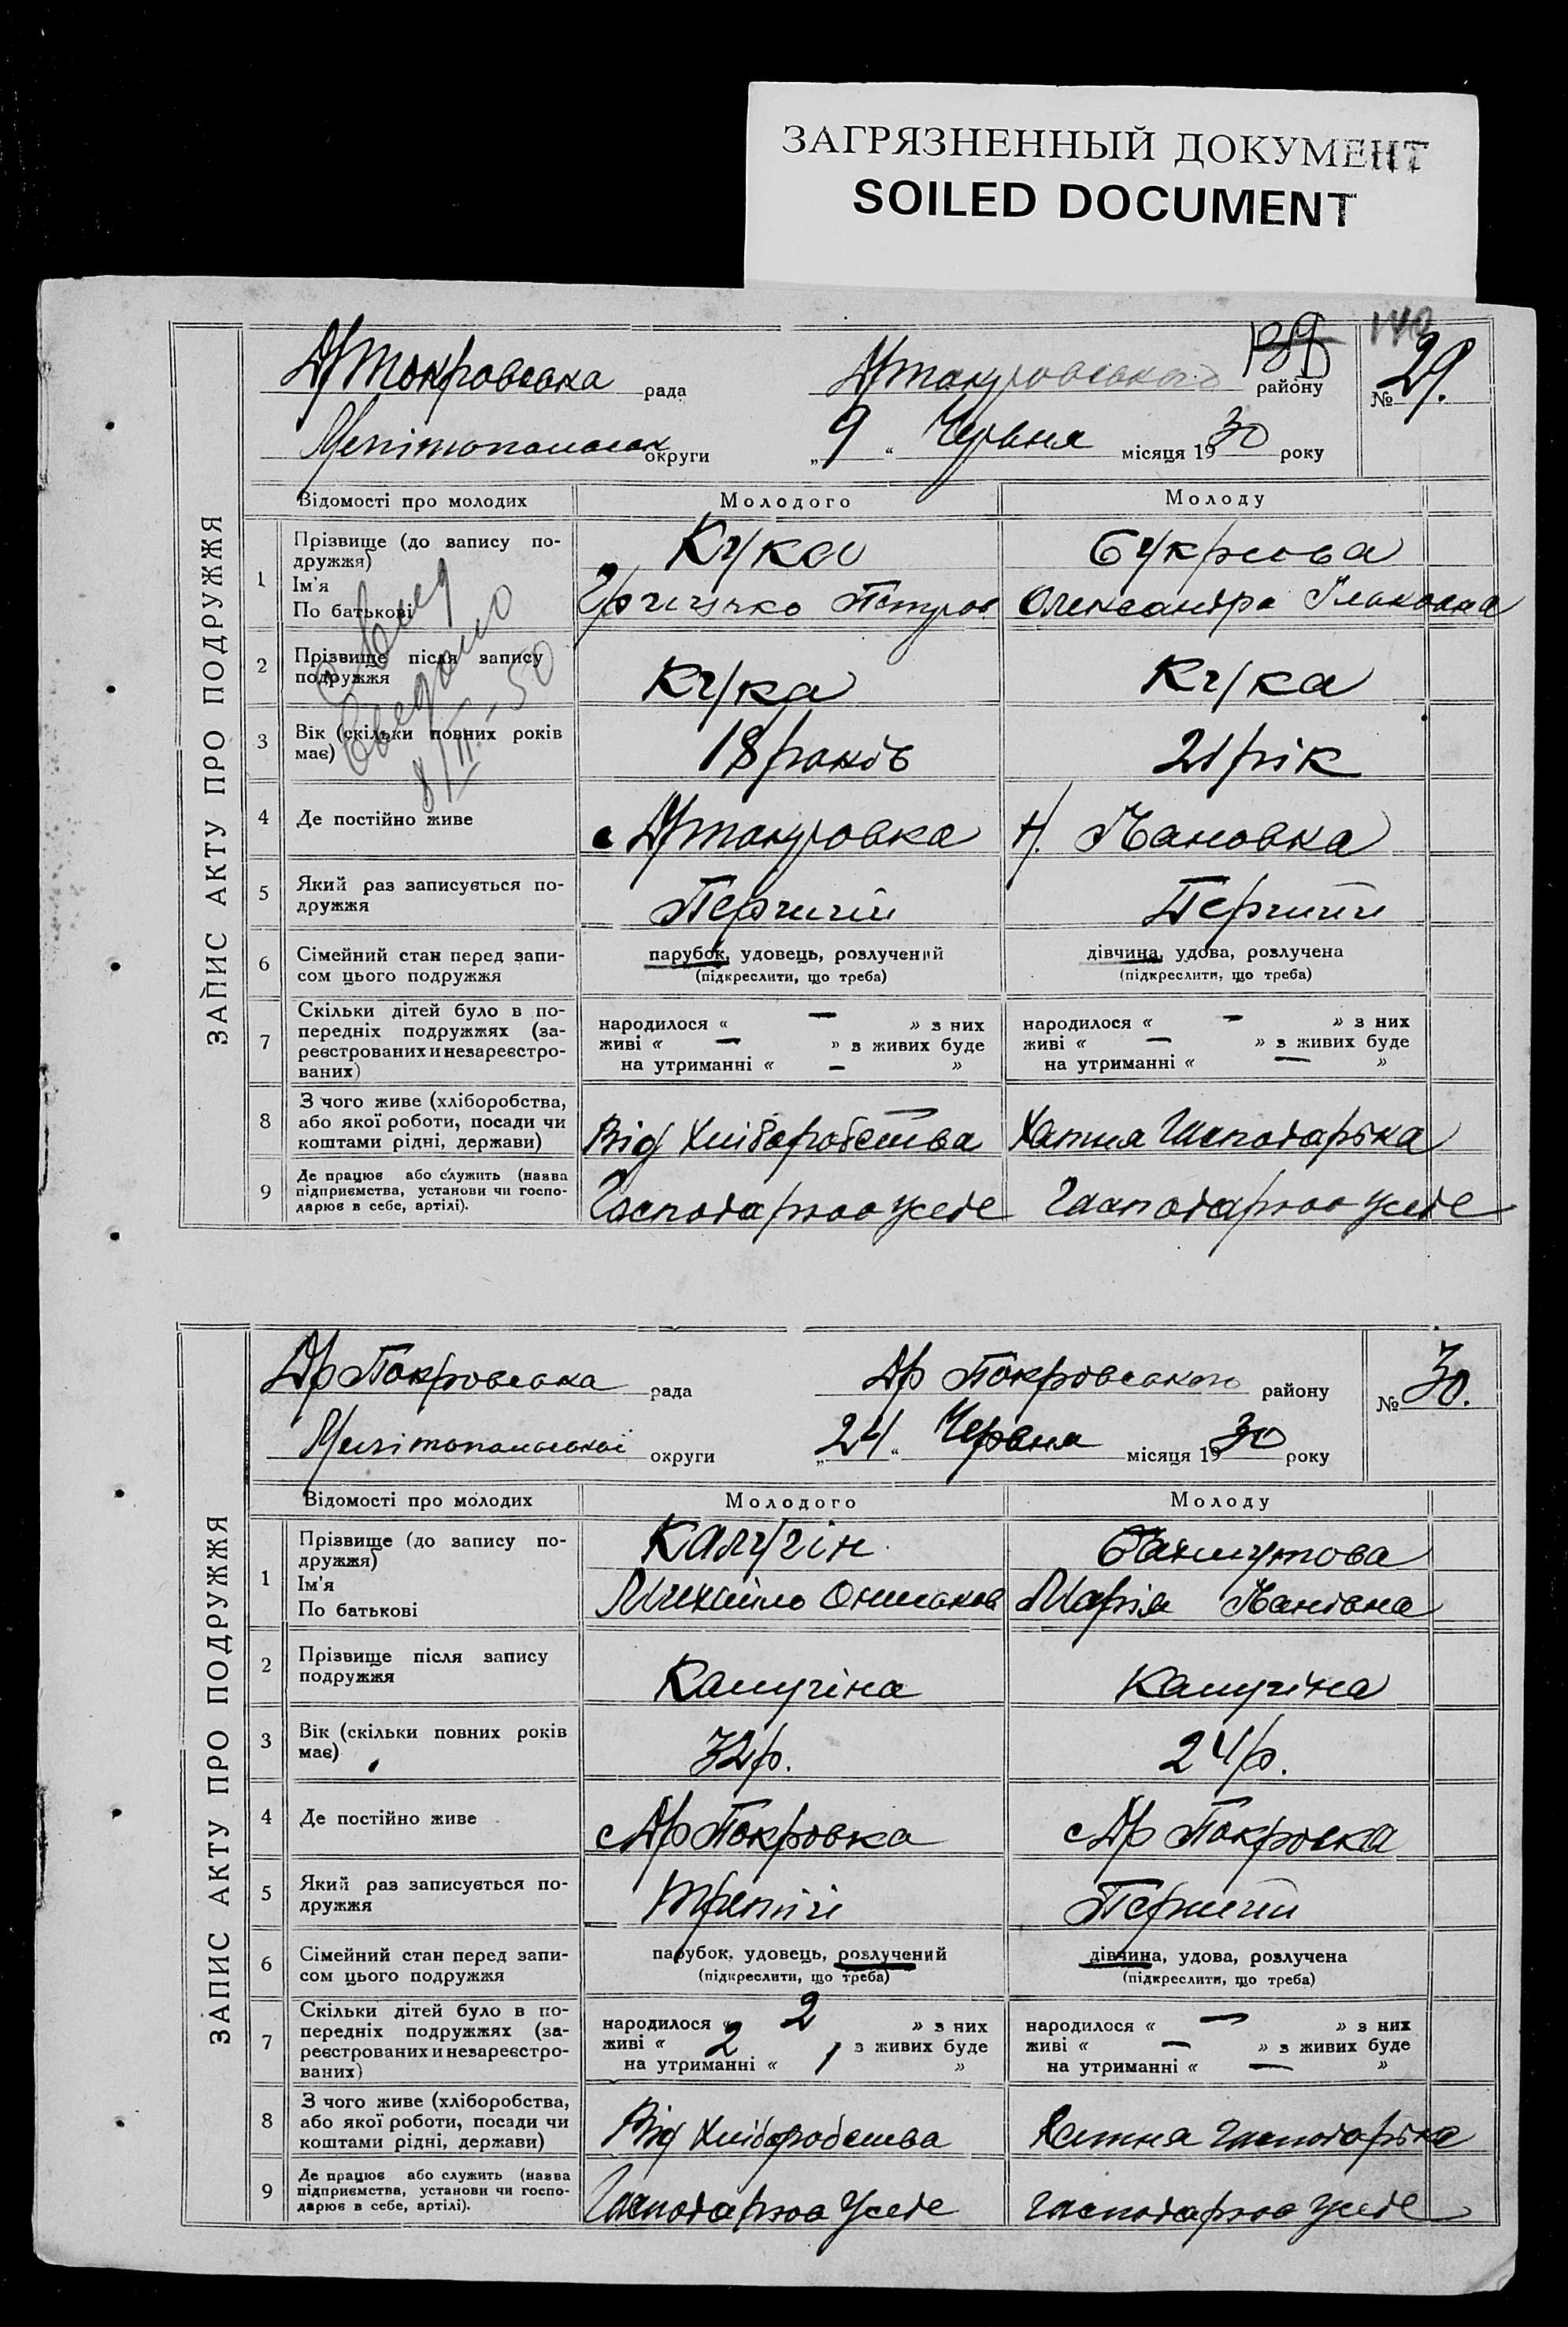 ЗАГРЯЗНЕННЫЙ ДОКУМЕНТ
SOILED DOCUMENT
140
ЗАПИС АКТУ ПРО ПОДРУЖЖЯ
ДрПокровська рада ДрПокровського району № 29.
Мелітопольськ округи „9“ Червня місяця 1930 року
Відомості про молодих Молодого Молоду
1 Прізвище (до запису по-
дружжя)
Ім'я
По батькові
Кчка
Грицько Петров Олександра
2 Прізвище після запису
подружжя
Кчка Кчка
3 Вік (скільки повних років
має)
18 років 21 рік
4 Де постійно живе
с ДрПокровка Н. Івановка
5 Який раз записується по-
дружжя
Перший Перший
6 Сімейний стан перед запи-
сом цього подружжя
парубок, удовець, розлучений дівчина, удова, розлучена
(підкреслити, що треба) (підкреслити, що треба)
7 Скільки дітей було в по-
передніх подружжях (за-
реєстрованих и незареєстро-
ваних)
народилося « — » з них народилося « — » з них
живі « — » з живих буде живі « — » з живих буде
на утриманні « — » на утриманні « — »
8 З чого живе (хліборобства,
або якої роботи, посади чи
коштами рідні, держави)
Від Хліборобства Хатня Господарька
9 Де працює або служить (назва
підприємства, установи чи госпо-
дарює в себе, артілі).
Господарює у себе Господарює у себе
8/II-50
ЗАПИС АКТУ ПРО ПОДРУЖЖЯ
Др Покровська рада Др Покровського району № 30.
Мелітопольської округи „24“ Червня місяця 1930 року
Відомості про молодих Молодого Молоду
1 Прізвище (до запису по-
дружжя)
Ім'я
По батькові
Калугін Бахмутова
Михайло Марія Іванівна
2 Прізвище після запису
подружжя
Калугіна Калугіна
3 Вік (скільки повних років
має)
32р. 24р.
4 Де постійно живе
с Др Покровка с Др Покровка
5 Який раз записується по-
дружжя
Третій Перший
6 Сімейний стан перед запи-
сом цього подружжя
парубок, удовець, розлучений дівчина, удова, розлучена
(підкреслити, що треба) (підкреслити, що треба)
7 Скільки дітей було в по-
передніх подружжях (за-
реєстрованих и незареєстро-
ваних)
народилося « 2 » з них народилося « — » з них
живі « 2 з живих буде живі « — » з живих буде
на утриманні « 1 » на утриманні « — »
8 З чого живе (хліборобства,
або якої роботи, посади чи
коштами рідні, держави)
Від Хліборобства Хатня господарька
9 Де працює або служить (назва
підприємства, установи чи госпо-
дарює в себе, артілі).
Господарює у себе господарює у себе